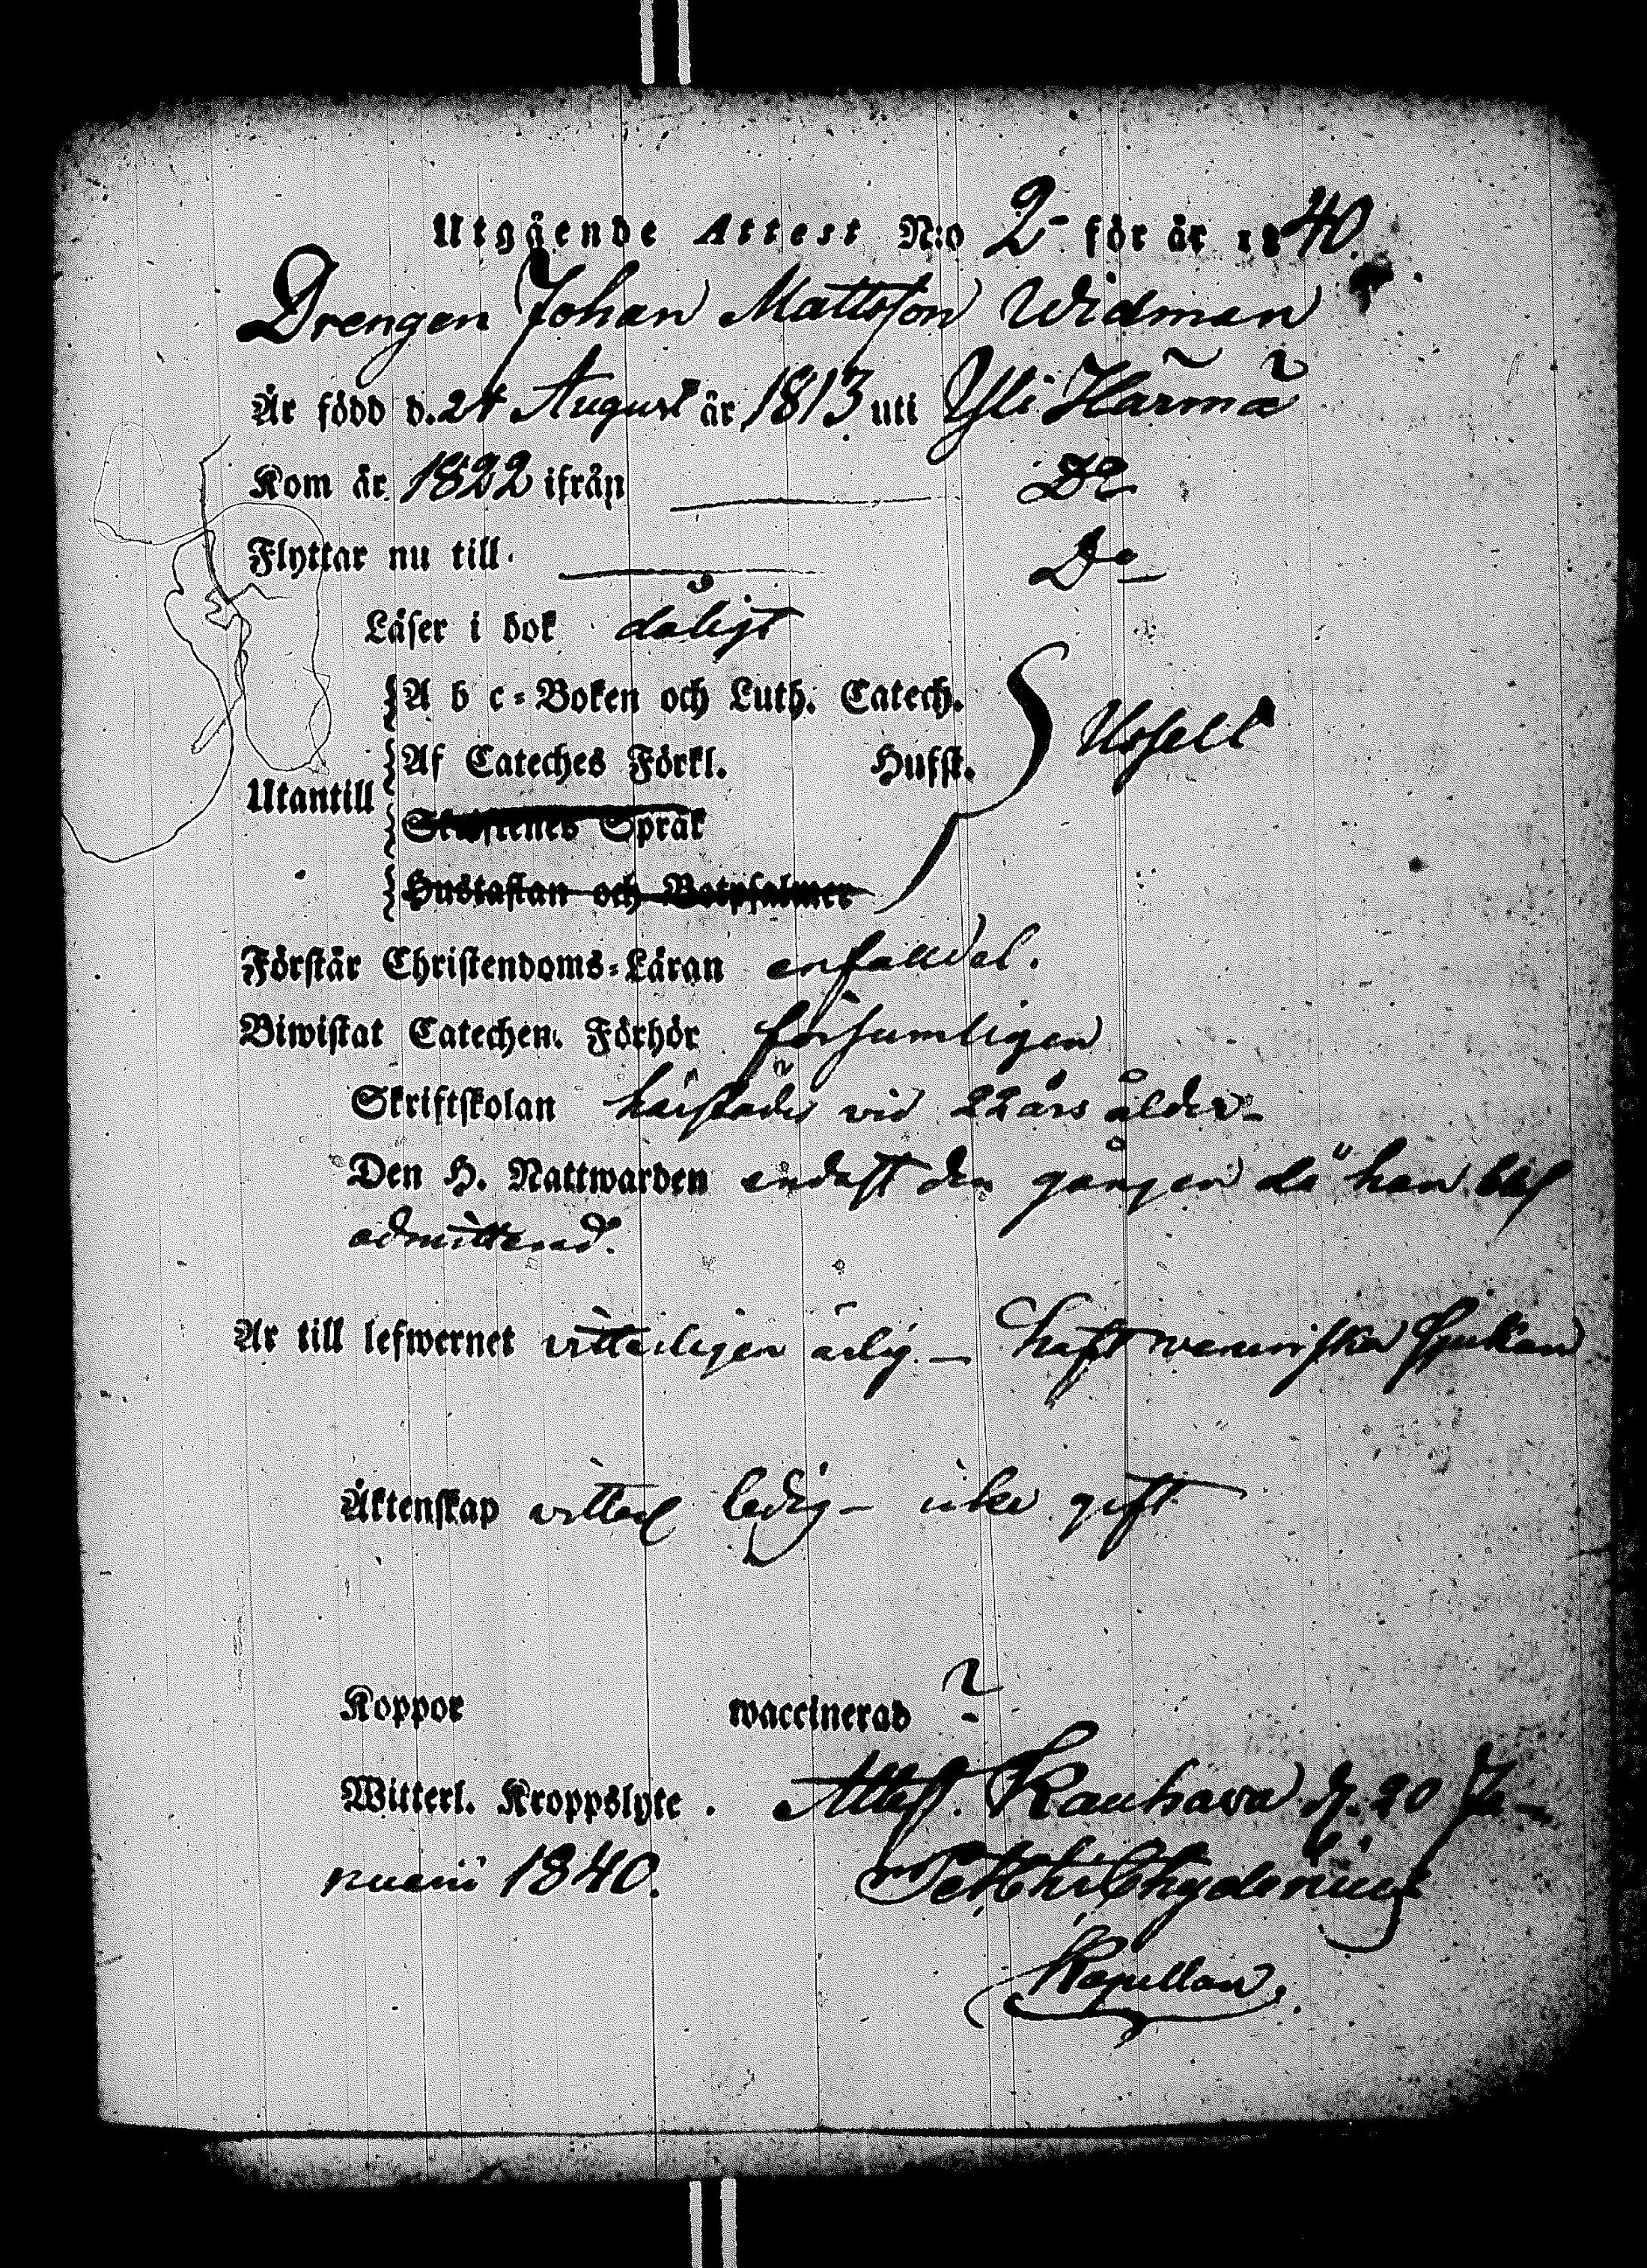 Utgående Attest N:o 2 för år 1840.
Drengen Johan Mattsson Widman
Är född d. 24 August år 1813 uti Yli Härmä
Kom år 1822 ifrån Do
Flyttar nu till Do
Läser i bok dåligt
A b c-Boken och Luth. Catech.
Af Cateches Förkl. Hufst. Usselt
Utantill
Skriftenes Språk
Hustaflan och Botpsalmer
Förstår Christendoms-Läran enfalldel.
Biwistat Catechen. Förhör försumligen
Skriftskolan härstädes vid 22 års ålder
Den H. Nattwarden endast den gången då han blef
admitterad.
Är till lefwernet vitterligen ärlig. – haft veneriska sjukan
Äktenskap vitterl ledig – icke gift
Koppor waccinerad ?
Witterl. Kroppslyte. Attest. Kauhava d. 20 Ja-
nuarii 1840. Chydenius
Kapellan.